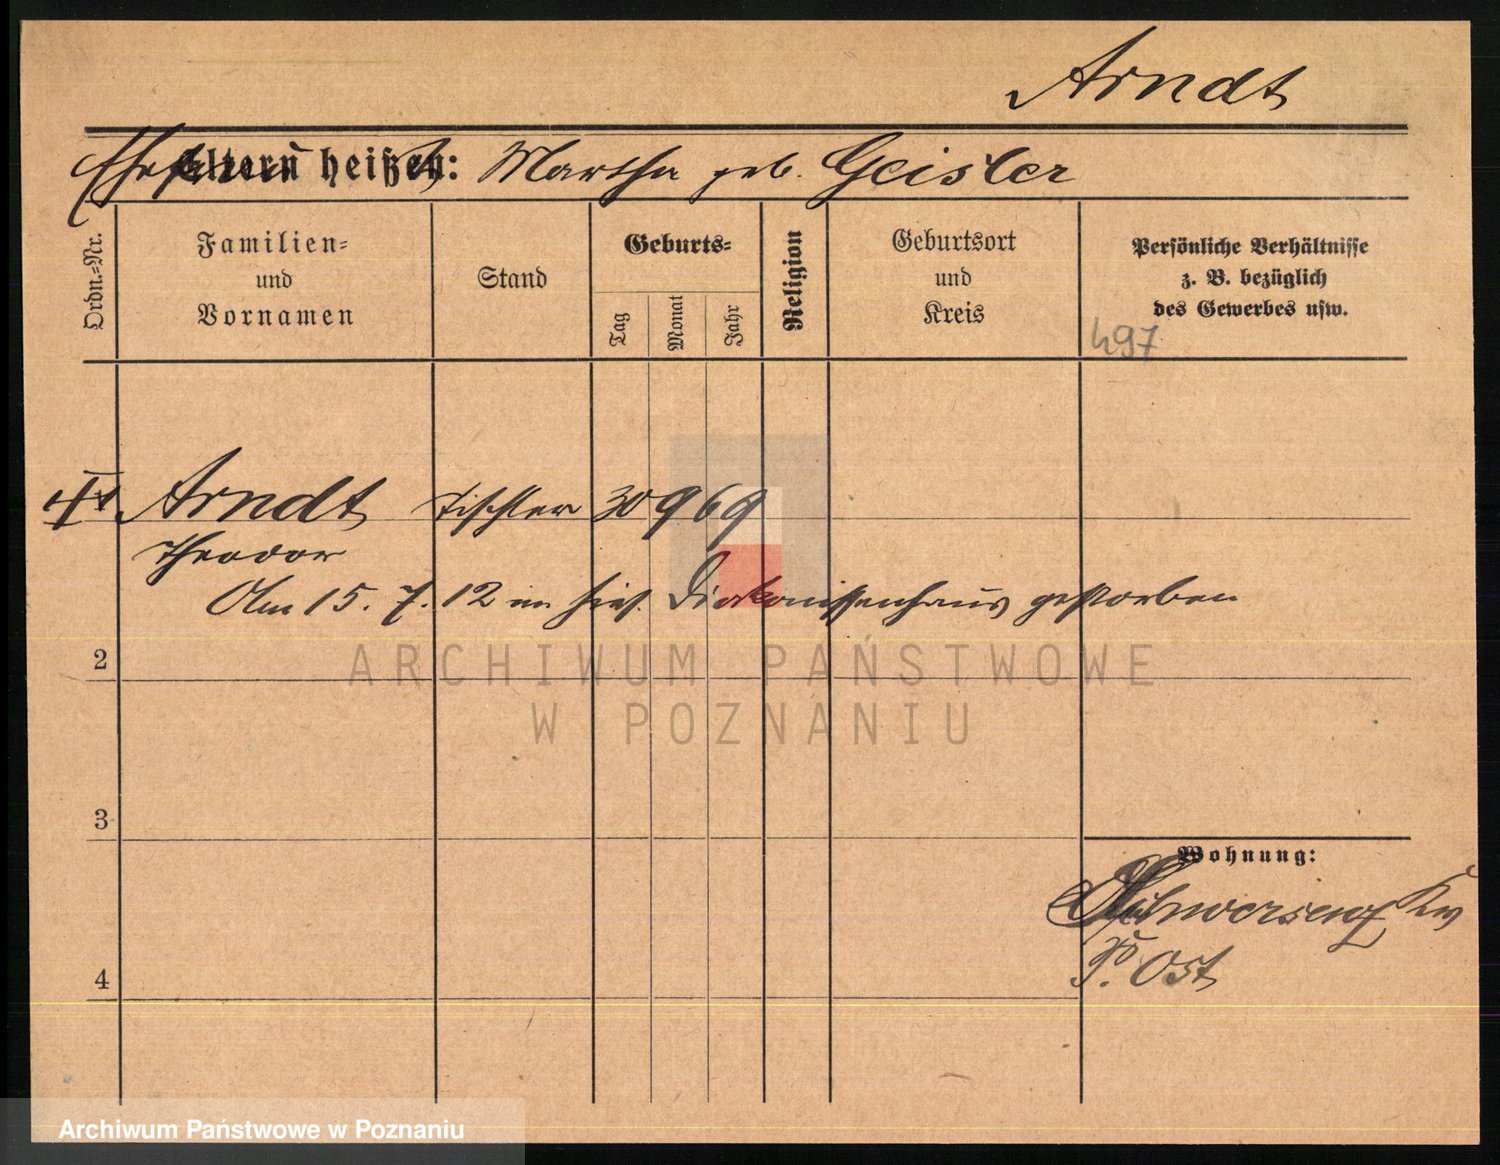 Arndt
Eltern heißen: Martha geb. Geisler
Ordn.=Nr.
Familien=
und
Vornamen
Stand
Geburts=
Tag
Monat
Jahr
Religion
Geburtsort
und
Kreis
Persönliche Verhältnisse
z. B. bezüglich
des Gewerbes usw.
497
Arndt Tischler 30 9 69
Theodor
Am 15. 7. 12 im hies. Diakonissenhaus gestorben
2
ARCHIWUM PAŃSTWOWE
W POZNANIU
3
Wohnung:
Schwersenz
P. Ost
4
Archiwum Państwowe w Poznaniu